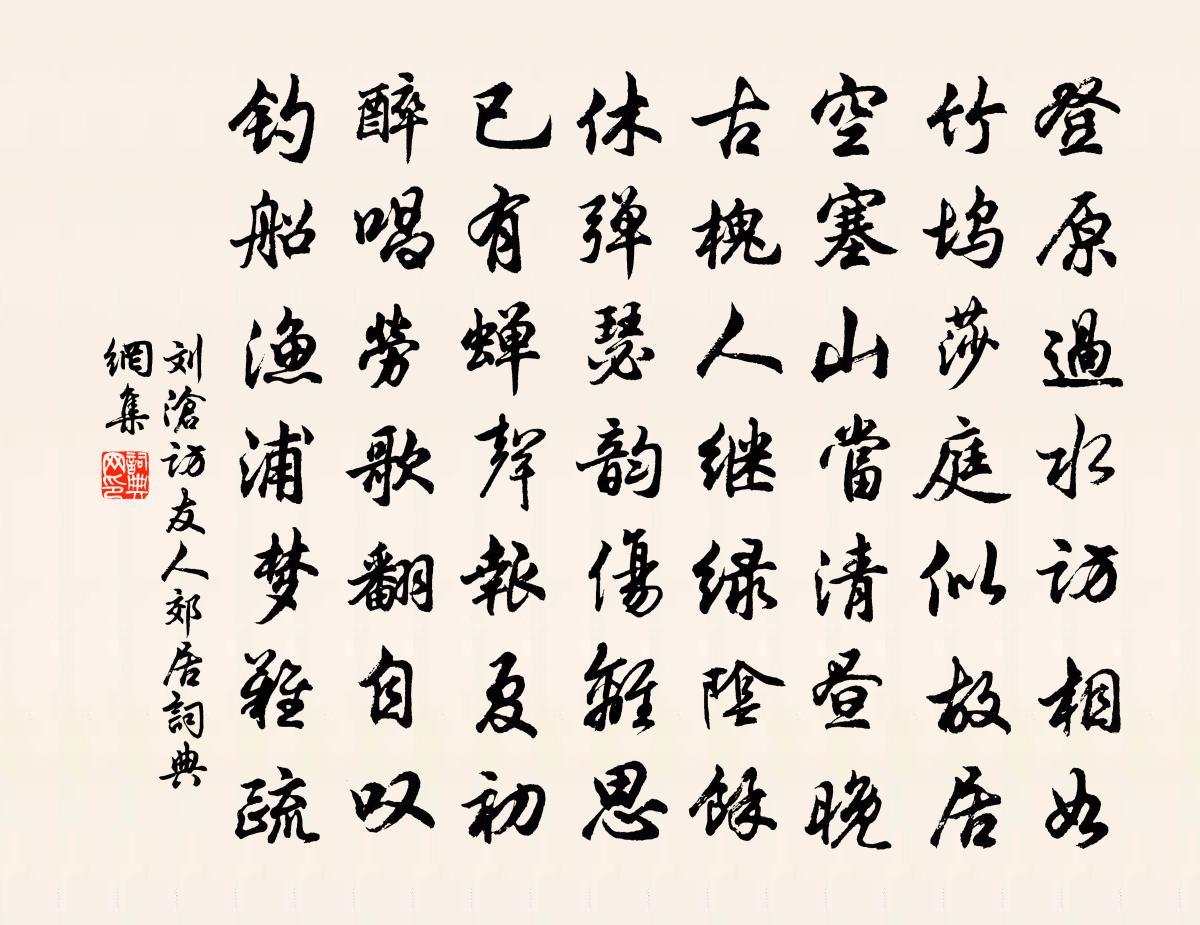 登原過水訪相如
竹塢莎庭似故居
空塞山當清昼晚
古槐人继绿陰餘
休弹瑟韵傷離思
已有蝉聲報夏初
醉唱勞歌翻自叹
钓船渔浦梦難疏
刘滄訪友人郊居詞典
網集
詞典
网印